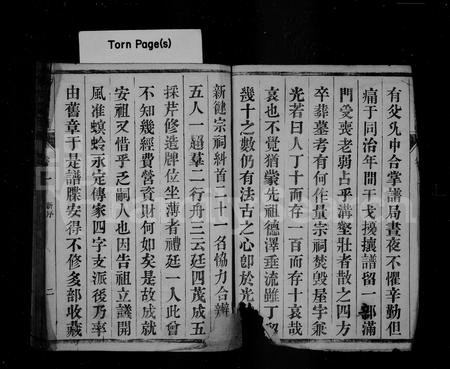 Torn Page(s)
有攵氕申合掌譜局晝夜不懼辛勤但
痛于同治年間干戈擾攘譜留一部滿
門受喪老弱占乎溝壑壯者散之四方
卒葬墓考有何作量宗祠焚毀屋宇兼
光若曰人丁十而存一百而存十哀哉
哀也不覺猶蒙先祖德澤垂流雖丁
幾十之數仍有法古之心卽於光
新健宗祠糾首二十一名恊力合辦
五人一趙羣二行舟三云廷四茂成五
採芹修造牌位坐薄者禮廷一人此會
不知幾經費營資財何如矣是故成就
安祖又惜乎乏嗣人也因告祖立議開
風准螟蛉永定傳家四字支派後乃率
由舊章于是譜牒安得不修多部收藏
新序
二